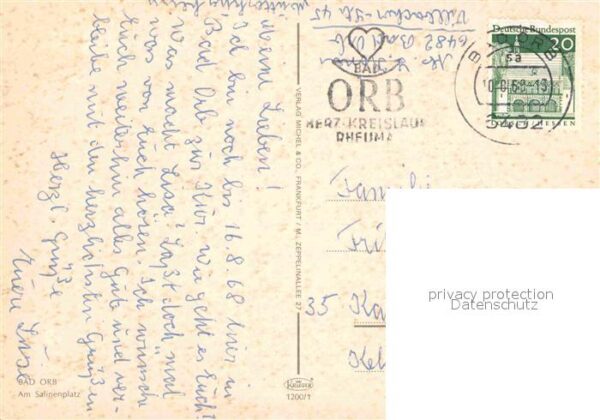 Meine Lieben!
Ich bin noch bis 16.8.68 hier in
Bad Orb zur Kur. Wie geht es Euch?
Was macht Lisa? Laßt doch mal
was von Euch hören. Ich wünsche
Euch weiterhin alles Gute und ver-
bleibe mit den herzlichsten Grüßen
Herzl. Grüße
Eure
BAD ORB
Am Salinenplatz
VERLAG MICHEL & CO., FRANKFURT / M., ZEPPELINALLEE 27
KRÜGER
1200/1
6482 Bad Orb
45
BAD
ORB
HERZ-KREISLAUF
RHEUMA
Deutsche Bundespost
20
6482
Familie
35 Ka
privacy protection
Datenschutz